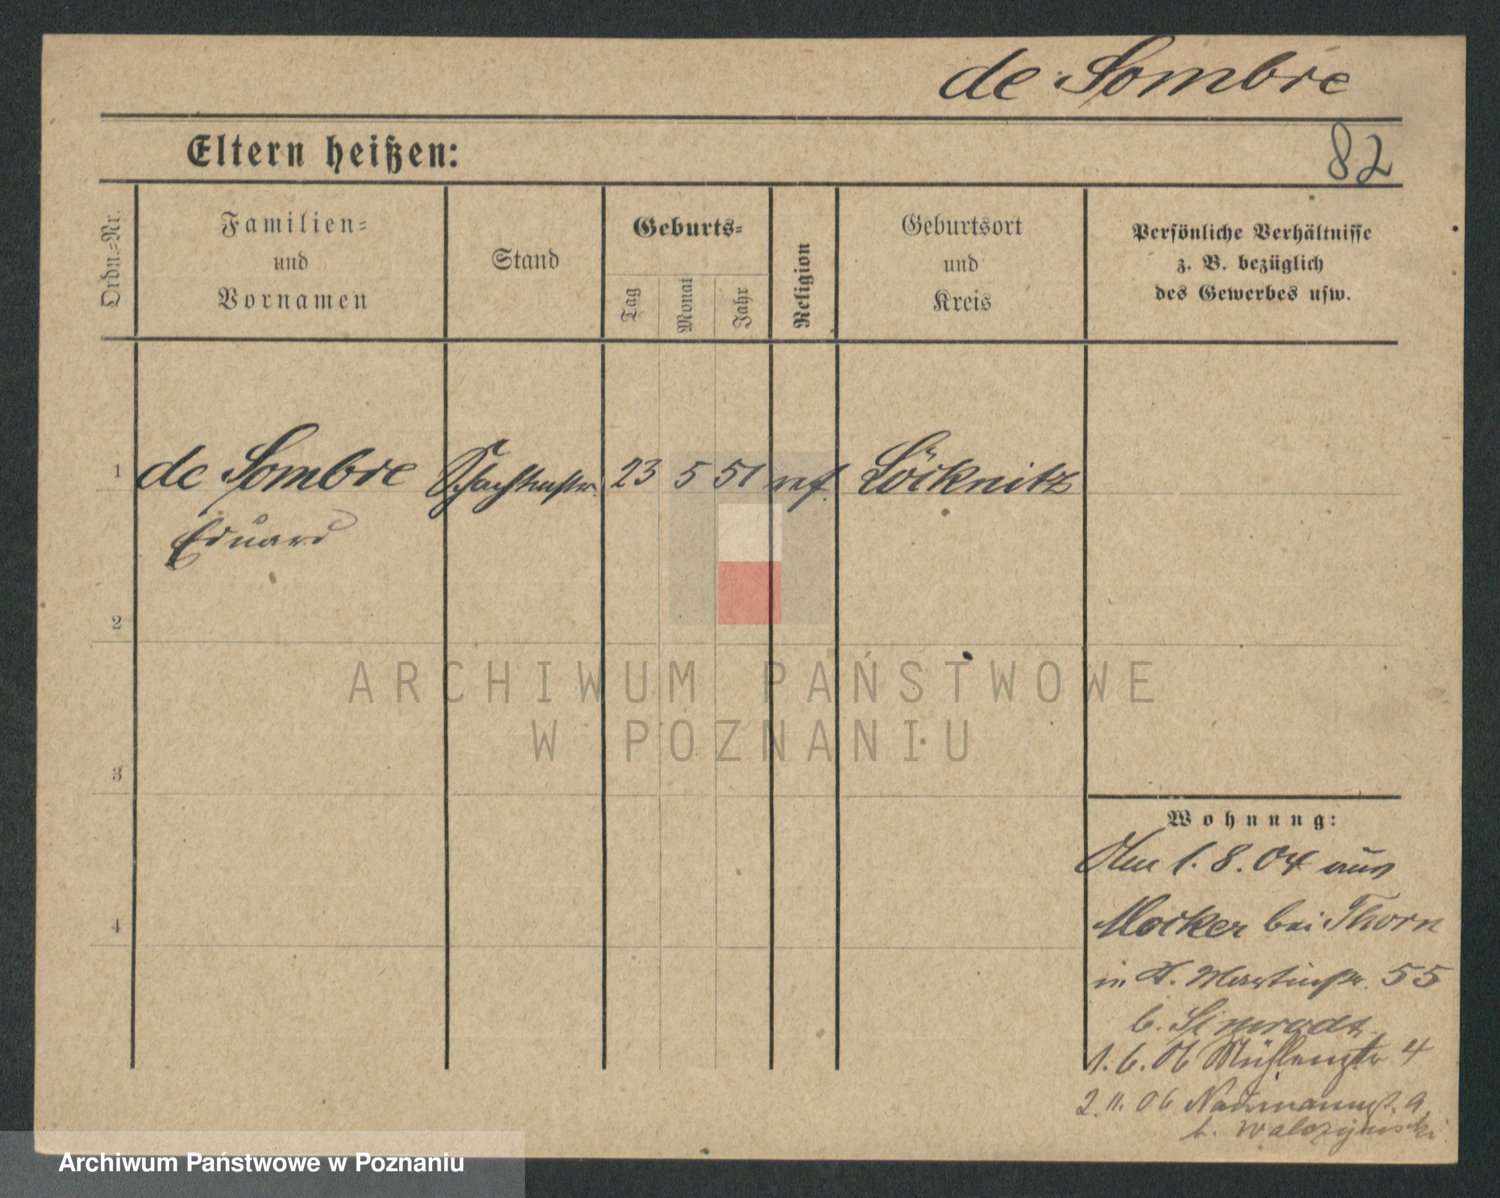 de Sombre
Eltern heißen:
82
Ordn.=Nr.
Familien=
und
Vornamen
Stand
Geburts=
Tag
Monat
Jahr
Religion
Geburtsort
und
Kreis
Persönliche Verhältnisse
z. B. bezüglich
des Gewerbes usw.
1
de Sombre
23 5 51 ref. Löcknitz
Eduard
2
ARCHIWUM PAŃSTWOWE
W POZNANIU
3
Wohnung:
1. 8. 04 aus
Mocker bei Thorn
in St. Martinstr. 55
b.
1. 6. 06 Mühlenstr 4
2. 11. 06 Naumannst. 9
b. Walczynski
4
Archiwum Państwowe w Poznaniu